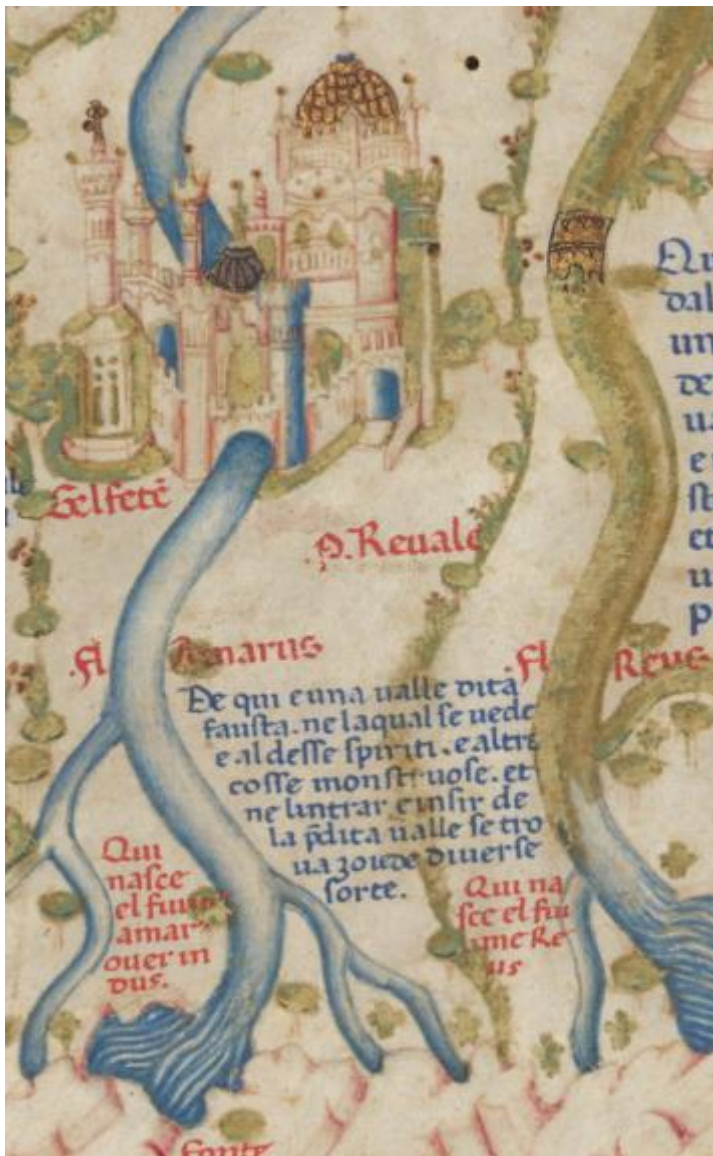 Gelfetē
.P. Revale
.fl
amarus
.fl
Reus
De qui e una ualle dita
fausta. ne laqual se uede
e aldesse spiriti. e altre
cosse monstruose. et
ne lintrar e insir de
la p̄dita ualle se tro
ua zoie de diuerse
sorte.
Qui
nasce
el fiume
amar
ouer in
dus.
Qui na
sce el fiu
me Re
us
fonte
Qu
dal
un
de
ua
e
st
et
u
p